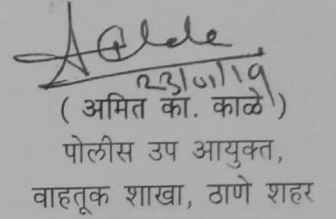 23/01/19
( अमित का. काळे )
पोलीस उप आयुक्त,
वाहतूक शाखा, ठाणे शहर